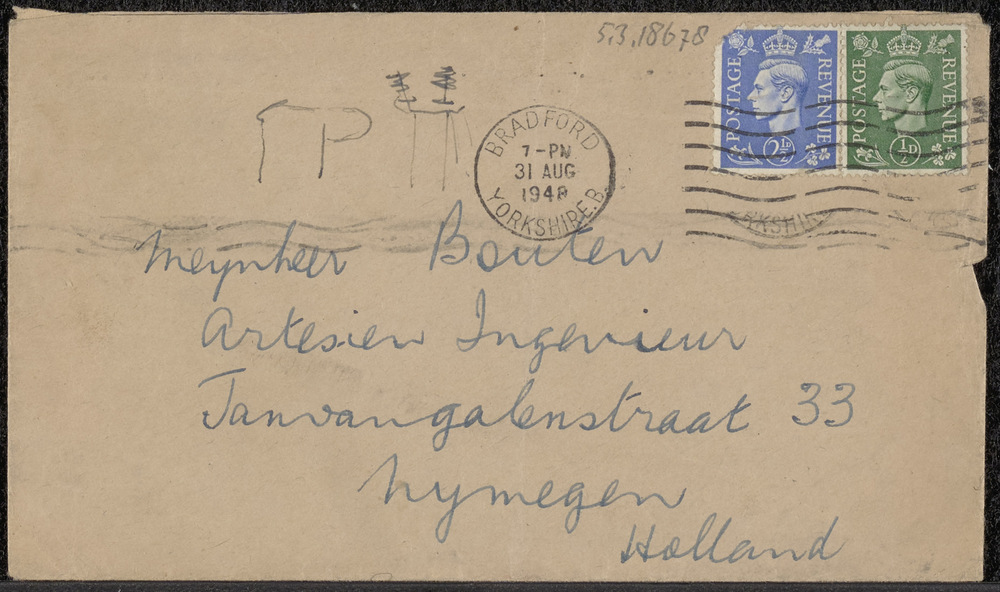 5.3.18678
POSTAGE REVENUE
2½D
POSTAGE REVENUE
½D
BRADFORD
7-PM
31 AUG
1948
YORKSHIRE.B.
RKSHIR
Meynheer Bouten
Artesien Ingenieur
Janvangalenstraat 33
Nymegen
Holland